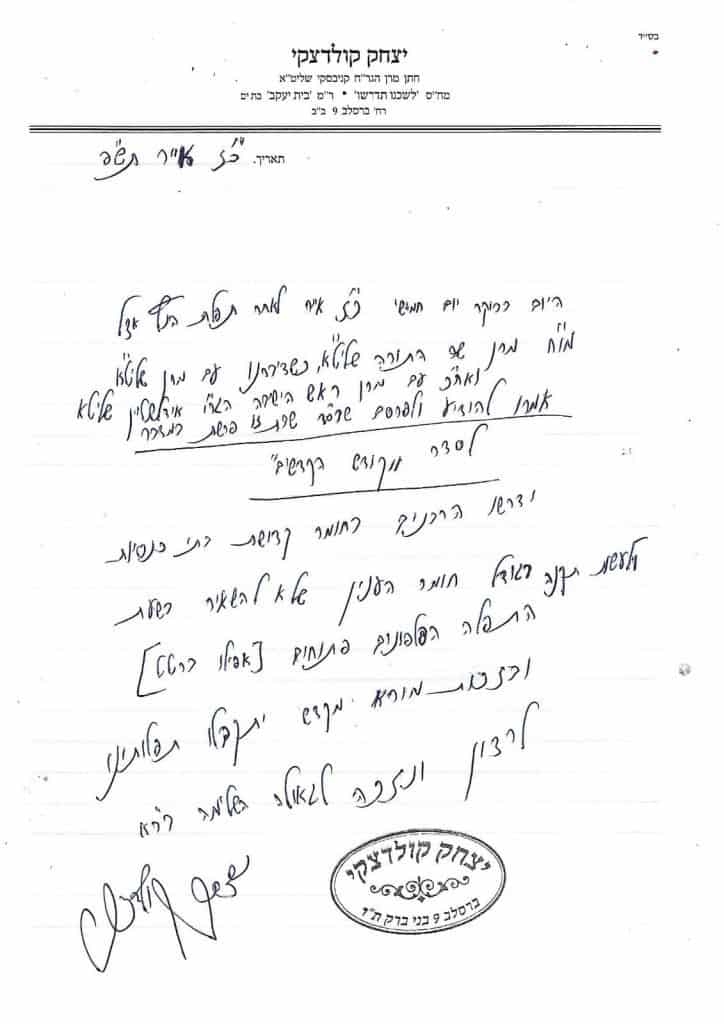 בס״ד
יצחק קולדצקי
חתן מרן הגר״ח קניבסקי שליט״א
מח״ס ׳לשכנו תדרשו׳ • ר״מ ׳בית יעקב׳ בת ים
רח׳ ברסלב 9 ב״ב
תאריך. כ״ז אייר תש״פ
היום בבוקר יום חמישי כ״ז אייר לאחר תפלת הנץ אצל
מו״ח מרן שר התורה שליט״א, כשדיברנו עם מרן שליט״א
ואח״כ עם מרן ראש הישיבה הגר״י אידלשטיין שליט״א
אמרו להודיע ולפרסם שבשבת זו פרשת במדבר
לסדר מקודש הקדשים״
ודרשו הרבנים בחומר קדושת בתי כנסיות
ולעשות תקנה בגודל חומר הענין שלא להשאיר בשעת
התפלה הפלפונים פתוחים [אפילו ברטט]
ובזכות מורא מקדש יתקבלו תפלותינו
לרצון ונזכה לגאולה השלימה בב״א
יצחק קולדצקי
יצחק קולדצקי
ברסלב 9 בני ברק ת״ד